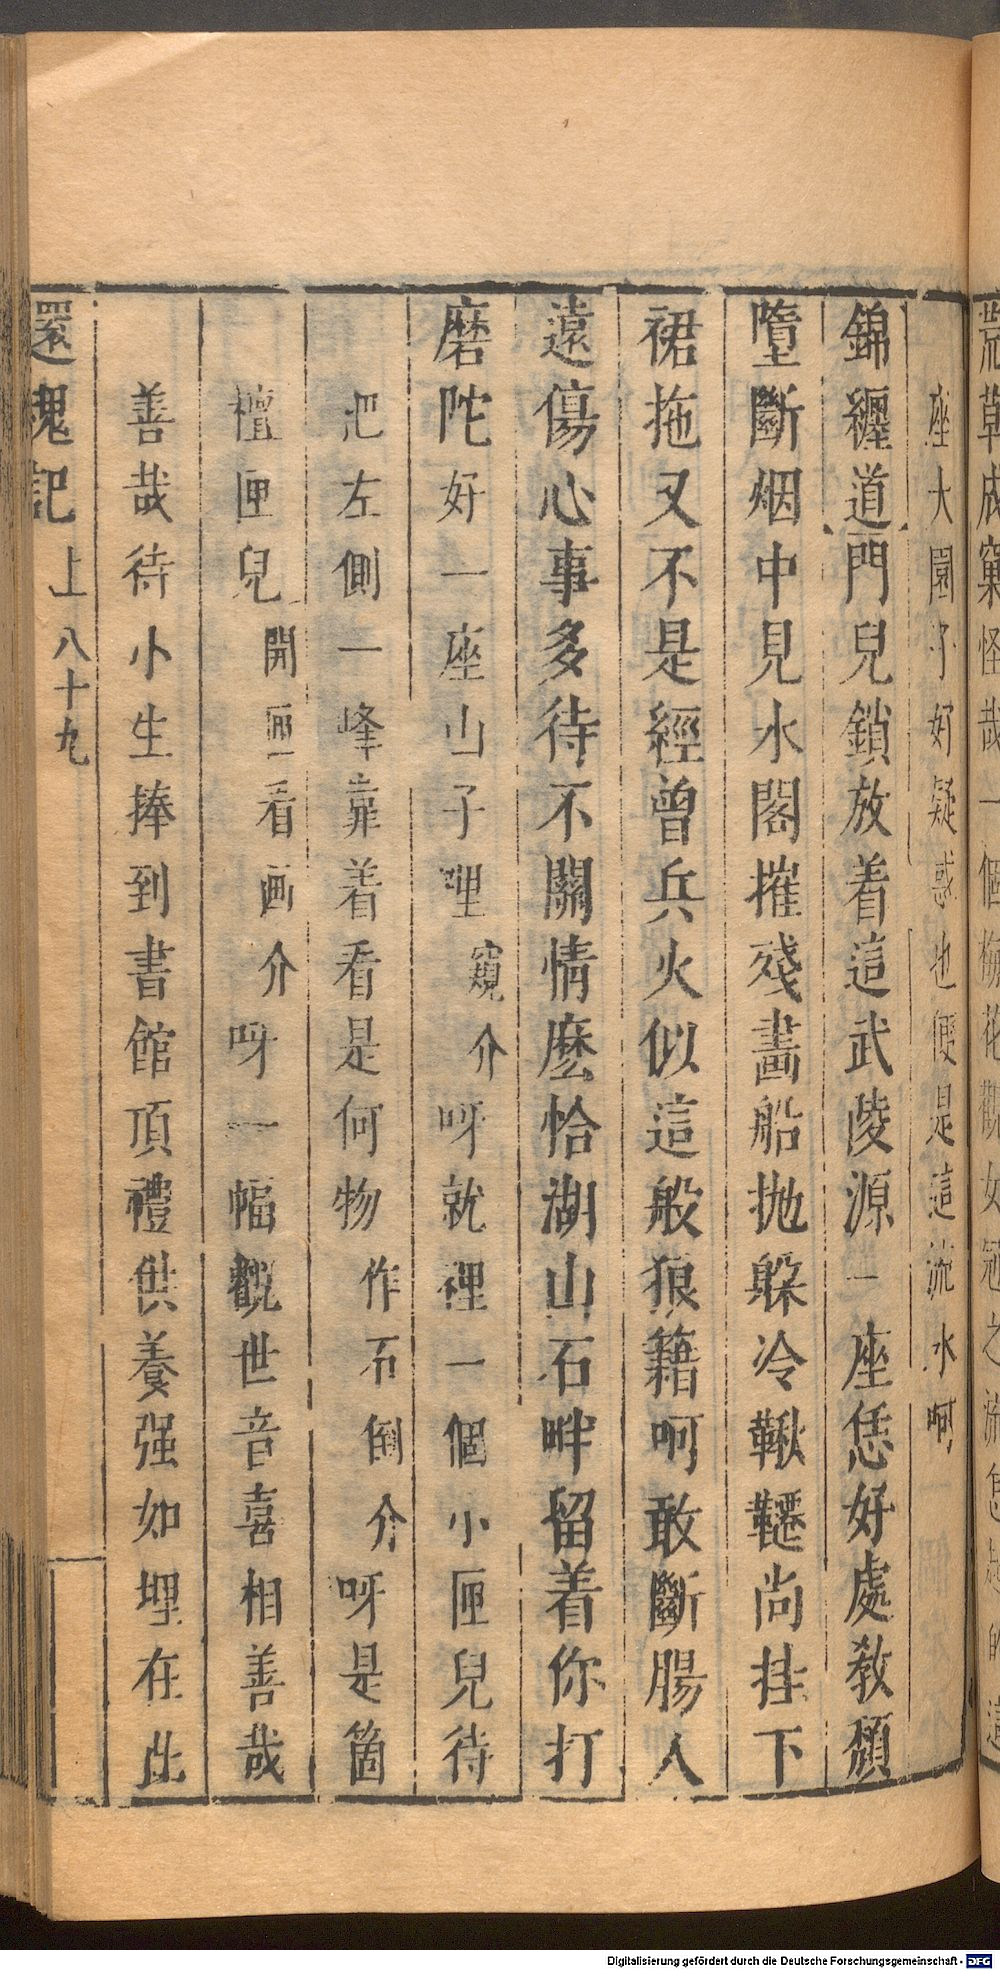 荒草成窠怪哉一個梅花觀女冠之流怎起的這
座大園子好疑惑也便是這流水呵
錦纏道門兒鎖放着這武陵源一座恁好處教頹
墮斷烟中見水閣摧殘畵船抛躱冷鞦韆尚挂下
裙拖又不是經曾兵火似這般狼籍呵敢斷腸人
遠傷心事多待不關情麽恰湖山石畔留着你打
磨陀好一座山子哩窺介呀就裡一個小匣兒待
把左側一峰靠着看是何物作石倒介呀是箇
檀匣兒開匣看画介呀一幅觀世音喜相善哉
善哉待小生捧到書館頂禮供養强如埋在此
還魂記 上 八十九
Digitalisierung gefördert durch die Deutsche Forschungsgemeinschaft - DFG